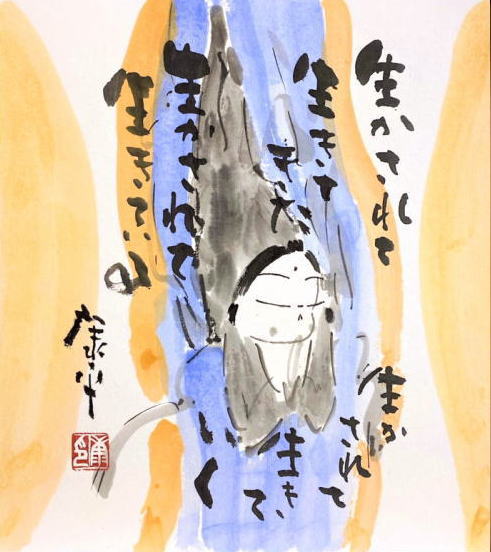 生かされて
生きて
きた
生かされて
生きている
生か
されて
生きて
いく